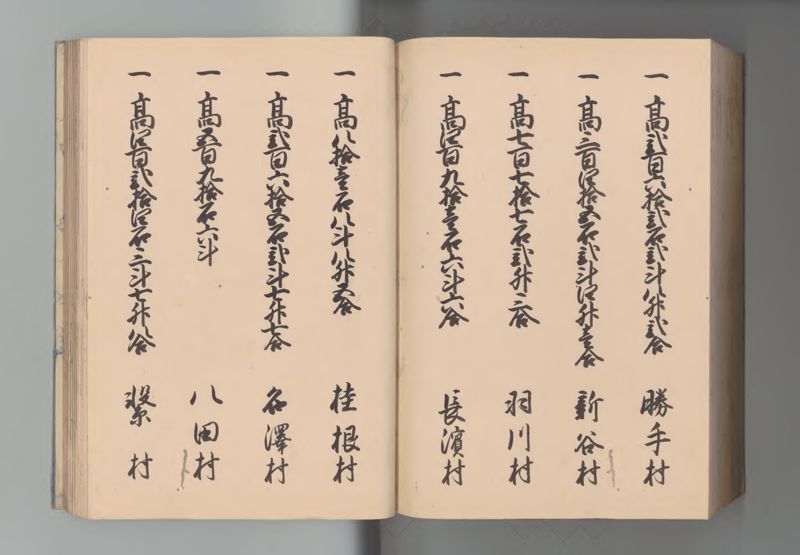 一 高弐百六拾弐石弐斗八升弐合 勝手村
一 高三百四拾五石弐斗四升壱合 新谷村
一 高七百七拾七石弐升三合 羽川村
一 高四百九拾壱石六斗六合 長濱村
一 高八拾壱石八斗八升五合 桂根村
一 高弐百六拾五石弐斗七升七合 名澤村
一 高五百九拾石六斗 八田村
一 高四百弐拾四石三斗七升八合 繋村